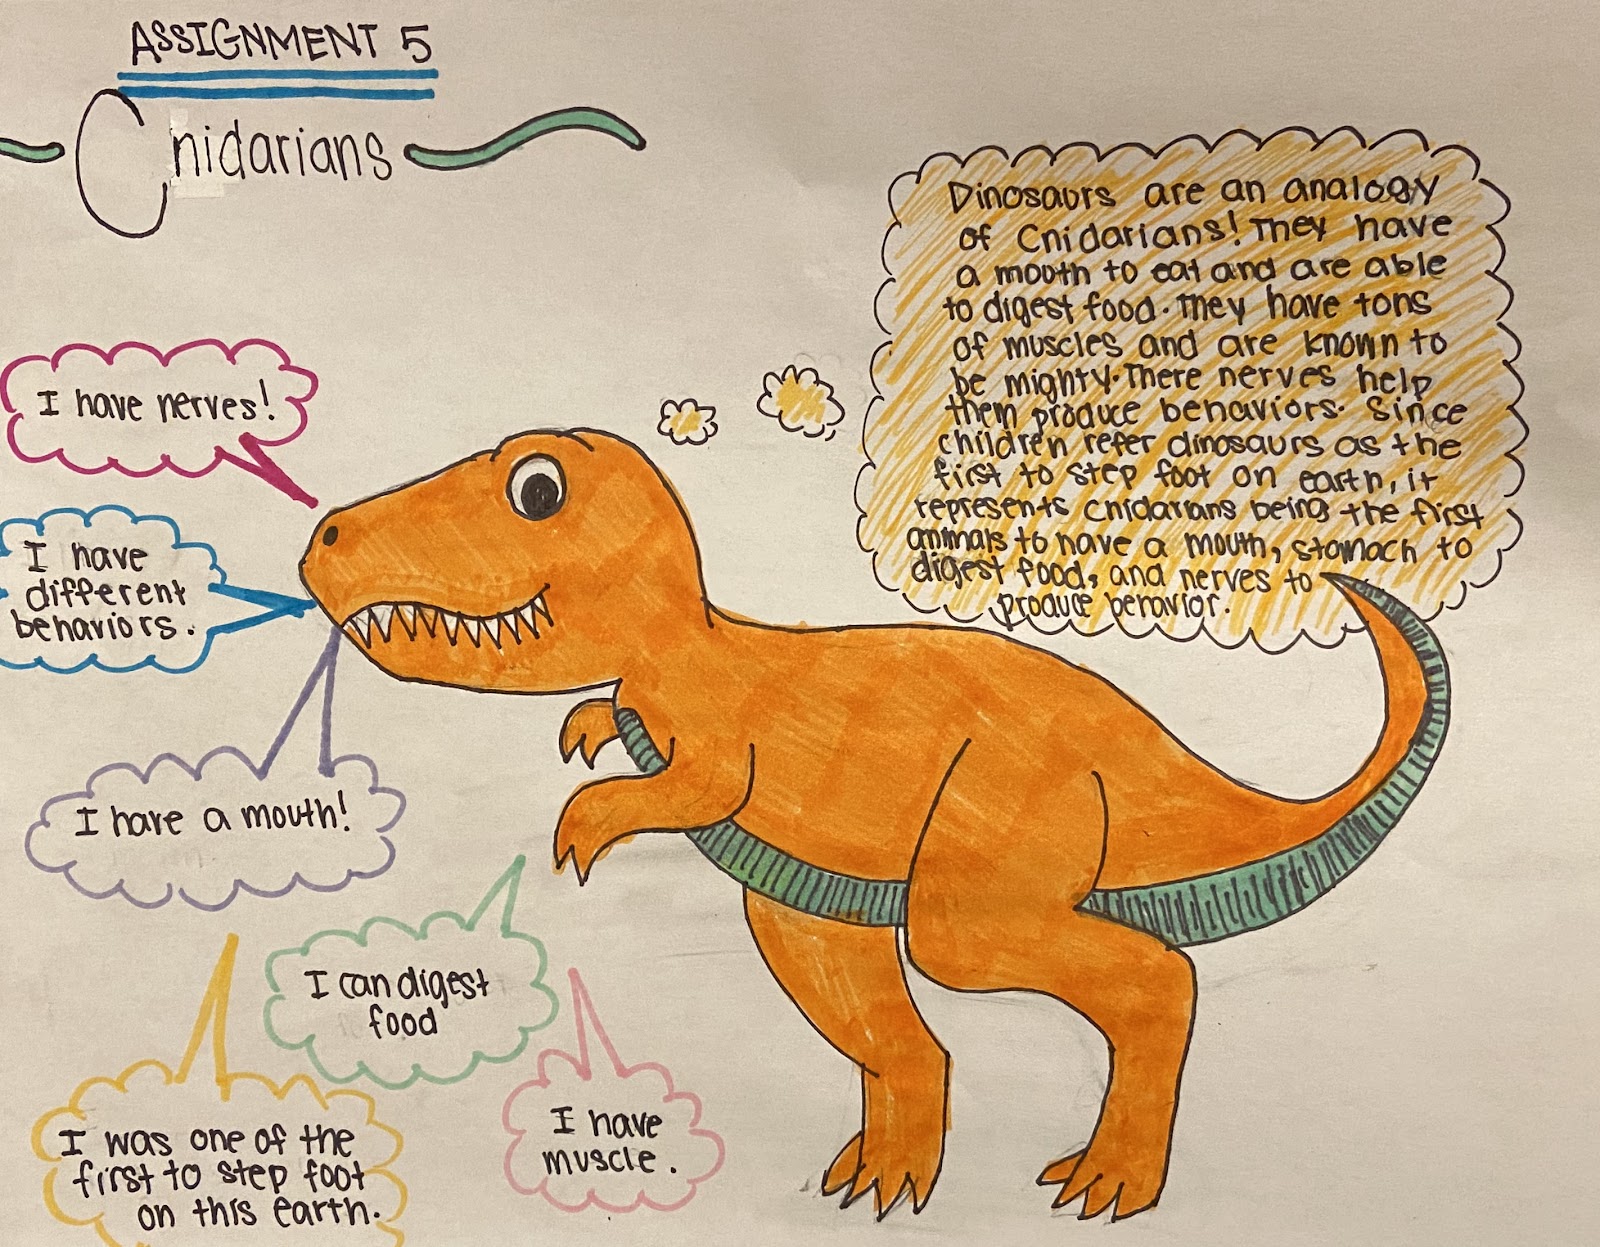 ASSIGNMENT 5
Cnidarians
Dinosaurs are an analogy
of Cnidarians! They have
a mouth to eat and are able
to digest food. They have tons
of muscles and are known to
be mighty. There nerves help
them produce behaviors. Since
children refer dinosaurs as the
first to step foot on earth, it
represents cnidarians being the first
animals to have a mouth, stomach to
digest food, and nerves to
produce behavior.
I have nerves!
I have
different
behaviors.
I have a mouth!
I can digest
food
I have
muscle.
I was one of the
first to step foot
on this earth.